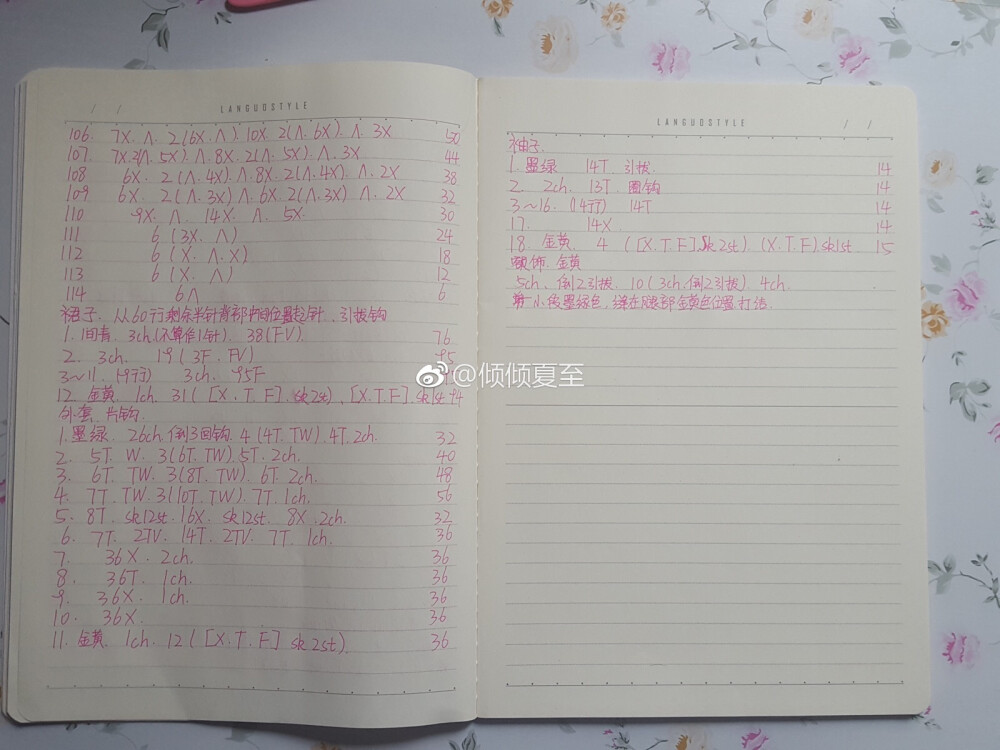 / / LANGUOSTYLE
106. 7X. Λ. 2(6X.Λ) 10X. 2(Λ.6X). Λ. 3X 50
107. 7X.2(Λ.5X).Λ.8X.2(Λ.5X).Λ.3X 44
108 6X. 2(Λ.4X).Λ.8X.2(Λ.4X).Λ.2X 38
109 6X. 2(Λ.3X)Λ.6X.2(Λ.3X).Λ.2X 32
110 9X. Λ. 14X. Λ. 5X. 30
111 6(3X.Λ) 24
112 6(X.Λ.X) 18
113 6(X.Λ) 12
114 6Λ 6
裙子. 从60行剩余半针背部中间位置起针、引拔钩
1. 间青. 3ch.(不算作1针). 38(FV). 76
2. 3ch. 19(3F.FV) 95
3~11.(9行) 3ch. 95F
12. 金黄. 1ch. 31([X.T.F].sk2st).[X.T.F].sk1st 94
外套. 片钩.
1. 墨绿. 26ch.倒3回钩.4(4T.TW).4T.2ch. 32
2. 5T. W. 3(6T.TW).5T.2ch. 40
3. 6T. TW. 3(8T.TW). 6T. 2ch. 48
4. 7T. TW.3(10T.TW).7T.1ch. 56
5. 8T. sk12st. 16X. sk12st. 8X.2ch. 32
6. 7T. 2TV. 14T. 2TV. 7T. 1ch. 36
7. 36X.2ch. 36
8. 36T. 1ch. 36
9. 36X. 1ch. 36
10. 36X. 36
11. 金黄. 1ch. 12([X.T.F] sk2st). 36
LANGUOSTYLE / /
袖子.
1. 墨绿 14T. 引拔. 14
2. 2ch. 13T. 圈钩 14
3~16.(14行) 14T 14
17. 14X. 14
18. 金黄. 4([X.T.F].sk2st).(X.T.F).sk1st 15
颈饰. 金黄
5ch. 倒2引拔. 10(3ch.倒2引拔) 4ch.
一小段墨绿色,缝在腰部金黄色位置.打结.
@倾倾夏至